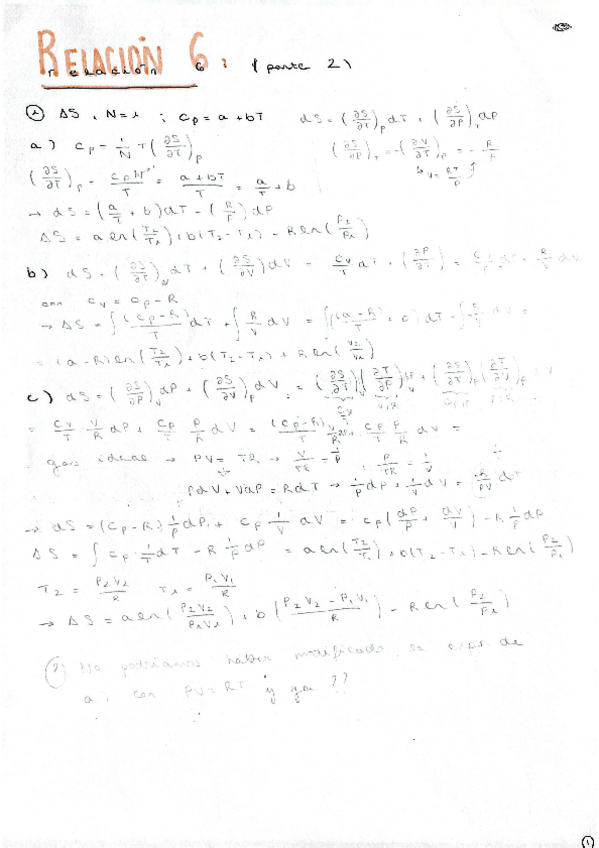 RELACIÓN 6: (parte 2)
relación 6
① ΔS, N=1 ; cp = a + bT dS = (∂S/∂T)p dT + (∂S/∂P)T dP
a) cp = 1/N T (∂S/∂T)p (∂S/∂P)T = -(∂V/∂T)p = - R/P
(∂S/∂T)p = cp N/T = a+bT/T = a/T + b ↳ V = RT/P
→ dS = (a/T + b) dT - (R/P) dP
ΔS = a ln(T2/T1) + b(T2-T1) - R ln(P2/P1)
b) dS = (∂S/∂T)V dT + (∂S/∂V) dV = cv/T dT + (∂P/∂T) = dT + R/V dV
con cv = cp - R
→ ΔS = ∫ (cp-R)/T dT + ∫ R/V dV = ∫ ((a-R)/T + b) dT + ∫ R/V dV =
= (a-R) ln(T2/T1) + b(T2-T1) + R ln(V2/V1)
c) dS = (∂S/∂P)V dP + (∂S/∂V)P dV = (∂S/∂T)V (∂T/∂P)V dP + (∂S/∂T)P (∂T/∂V)P dV
= cv/T V/R dP + cp/T P/R dV = (cp-R)/T V/R dP + cp/T P/R dV =
gas ideal → PV = TR → V/TR = 1/P P/TR = 1/V
PdV + VdP = RdT → 1/P dP + 1/V dV = R/PV dT
→ dS = (cp-R) 1/P dP + cp 1/V dV = cp (dP/P + dV/V) - R 1/P dP
ΔS = ∫ cp 1/T dT - R 1/P dP = a ln(T2/T1) + b(T2-T1) - R ln(P2/P1)
T2 = P2V2/R T1 = P1V1/R
→ ΔS = a ln(P2V2/P1V1) + b(P2V2 - P1V1/R) - R ln(P2/P1)
(?) No podríamos haber modificado la expr. de
a) con PV=RT y ya??
1